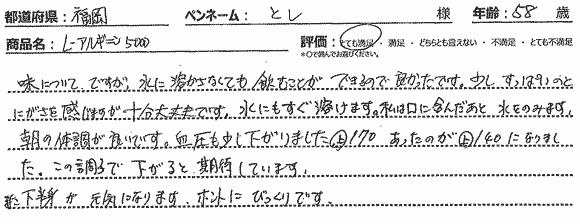 都道府県：福岡 ペンネーム：とし 様 年齢：58 歳
商品名：L-アルギニン5000 評価：とても満足・満足・どちらとも言えない・不満足・とても不満足
*○で囲んでお選びください。
味について ですが、水に溶かさなくても 飲むことが できるので 良かったです。少し すっぱいのと
にがさを感じますが 十分大丈夫です。水にもすぐ溶けます。私は口に含んだあと 水をのみます。
朝の体調が良いです。血圧も少し下がりました 上170 あったのが 上140 になりまし
た。この調子で 下がると 期待しています。
又 下半身が 元気になります。ホントに びっくりです。